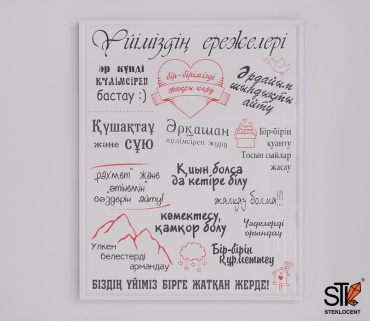 Үйіміздің ережелері
әр күнді
күлімсіреп
бастау :)
бір-бірімізді
жақсы көру
Әрдайым
шындықты
айту
Құшақтау
және сүю
Әрқашан
күлімсіреп жүру
Бір-бірін
қуанту
Тосын сыйлар
жасау
"рахмет" және
"өтінемін"
сөздерін айту!
Қиын болса
да кешіре білу
жалқау болма!!!
көмектесу,
қамқор болу
Уәделерді
орындау
Үлкен
белестерді
армандау
Бір-бірін
құрметтеу
БІЗДІҢ ҮЙІМІЗ БІРГЕ ЖАТҚАН ЖЕРДЕ!
STK
STEKLOCENT